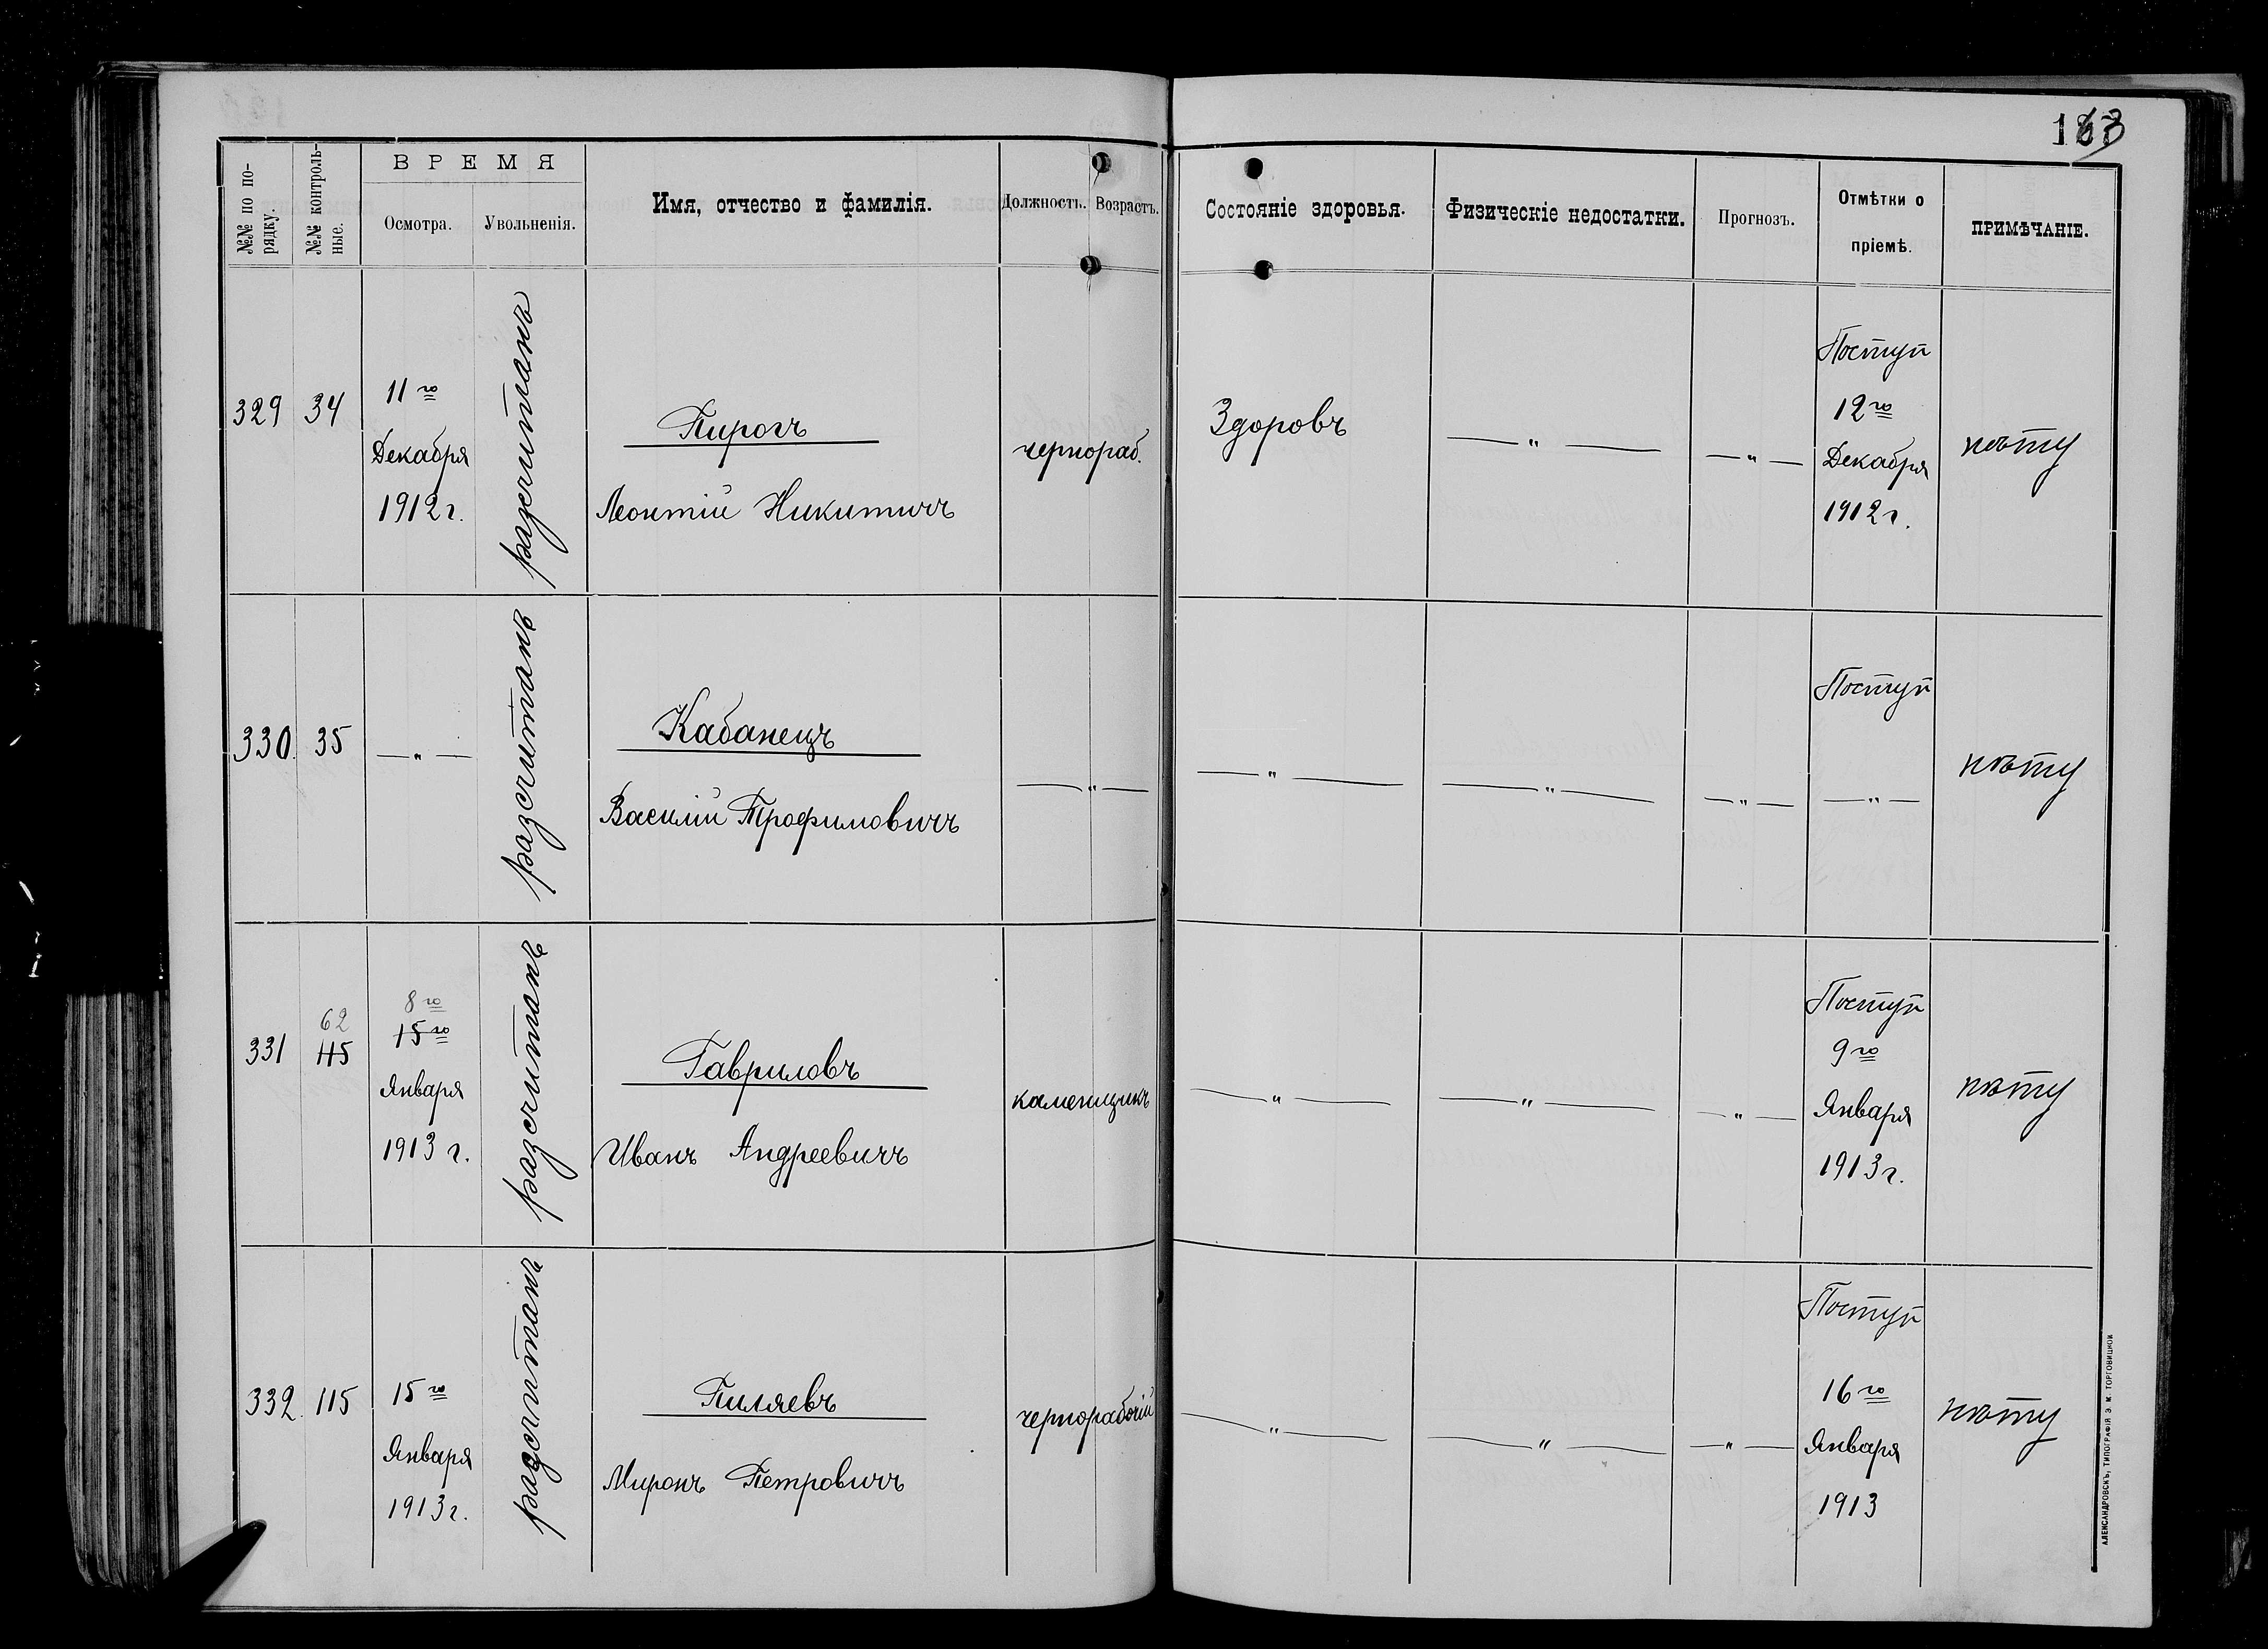 163
№№ по по-
рядку.
№№ контроль-
ные.
ВРЕМЯ
Осмотра.
Увольненія.
Имя, отчество и фамилія.
Должность.
Возрастъ.
Состояніе здоровья.
Физическіе недостатки.
Прогнозъ.
Отмѣтки о
пріемѣ.
ПРИМѢЧАНІЕ.
329
34
11го
Декабря
1912 г.
разсчитанъ
Пирогъ
Леонтій Никитичъ
чернораб.
Здоровъ
— " —
— " —
Поступ
12го
Декабря
1912 г.
нѣту
330.
35
— " —
разсчитанъ
Кабанецъ
Василій Трофимовичъ
— " —
— " —
— " —
— " —
Поступ
— " —
нѣту
331
62
115
8го
15го
Января
1913 г.
разсчитанъ
Гавриловъ
Иванъ Андреевичъ
каменщикъ
— " —
— " —
— " —
Поступ
9го
Января
1913 г.
нѣту
332.
115
15го
Января
1913 г.
разсчитанъ
Пиляевъ
Миронъ Петровичъ
чернорабочій
— " —
— " —
— " —
Поступ
16го
Января
1913
нѣту
АЛЕКСАНДРОВСКЪ, ТИПОГРАФІЯ Э. М. ТОРГОВИЦКОЙ